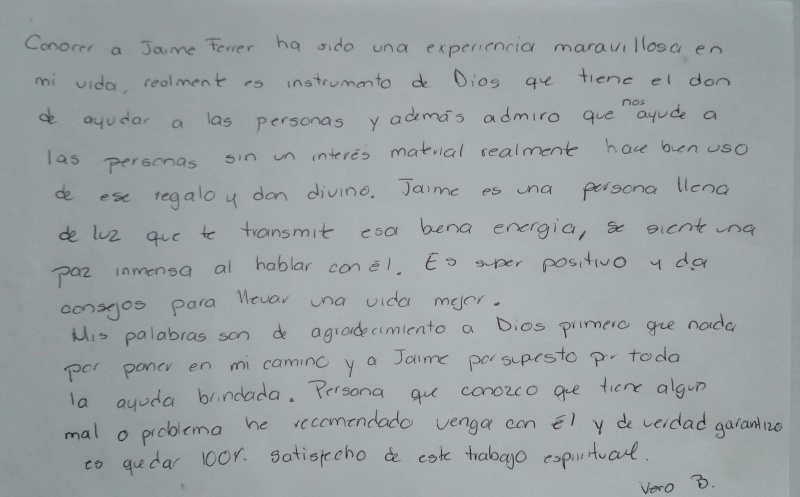 Conocer a Jaime Ferrer ha sido una experiencia maravillosa en
mi vida, realmente es instrumento de Dios que tiene el don
de ayudar a las personas y además admiro que nos ayude a
las personas sin un interés material realmente hace buen uso
de ese regalo y don divino. Jaime es una persona llena
de luz que te transmit esa bena energía, se siente una
paz inmensa al hablar con él. Es super positivo y da
consejos para llevar una vida mejor.
Mis palabras son de agradecimiento a Dios primero que nada
por poner en mi camino y a Jaime por supesto por toda
la ayuda brindada. Persona que conozco que tiene algun
mal o problema he recomendado venga con él y de verdad garantizo
es quedar 100%. satisfecho de este trabajo espiritual.
Vero B.